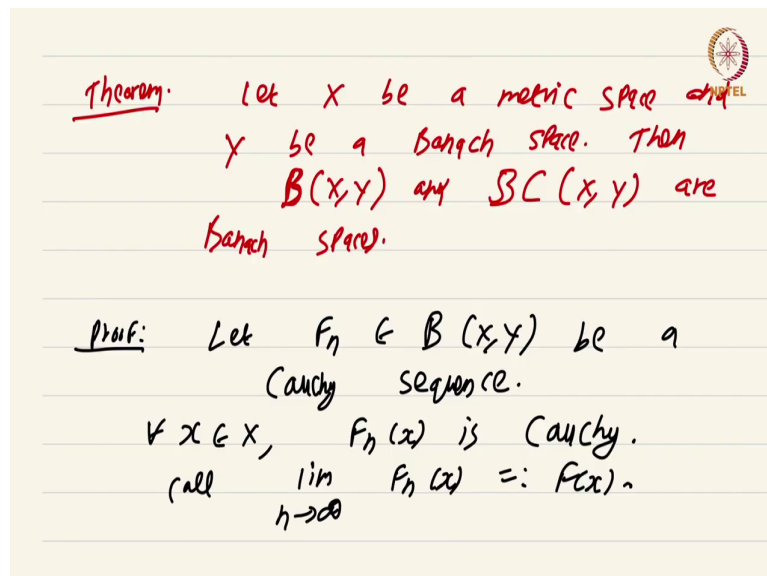 Theorem. Let X be a metric space and
NPTEL
Y be a Banach space. Then
B(X,Y) and BC(X,Y) are
Banach spaces.
Proof: Let Fn ∈ B(X,Y) be a
Cauchy sequence.
∀ x ∈ X, Fn(x) is Cauchy.
call lim Fn(x) =: F(x).
n→∞